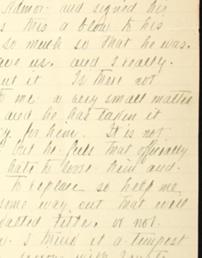 and signed his
this a blow to his
so much so that he was.
ave us, and I really.
ut it. Is there not
to me a very small matter
and he has taken it
y for him. It is not
but he feels that
hate to lose him and
to replace so help me
some way out that will
title, or not.
I think it a tempest